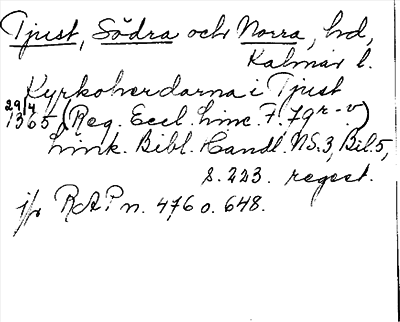 Tjust, Södra och Norra, hd,
Kalmar l.
Kyrkoherdarna i Tjust
29/4 1305 (Reg. Eccl. Linc. F. 79 r-v.)
Link. Bibl. Handl. NS. 3, Bil. 5,
s. 223. regest.
jfr RAP n. 476 o. 648.